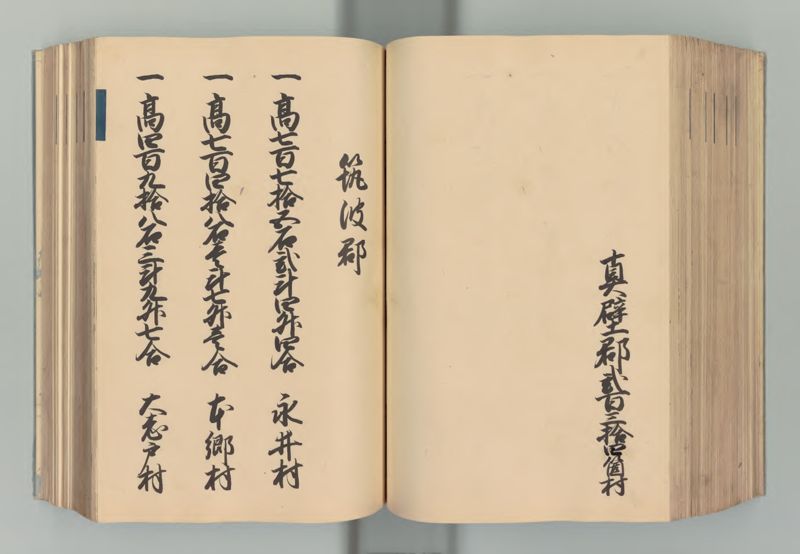 真壁郡弐百三拾四箇村
筑波郡
一 高七百七拾五石弐斗四升四合 永井村
一 高七百四拾八石壱斗七升壱合 本郷村
一 高四百九拾八石三斗九升七合 大志戸村